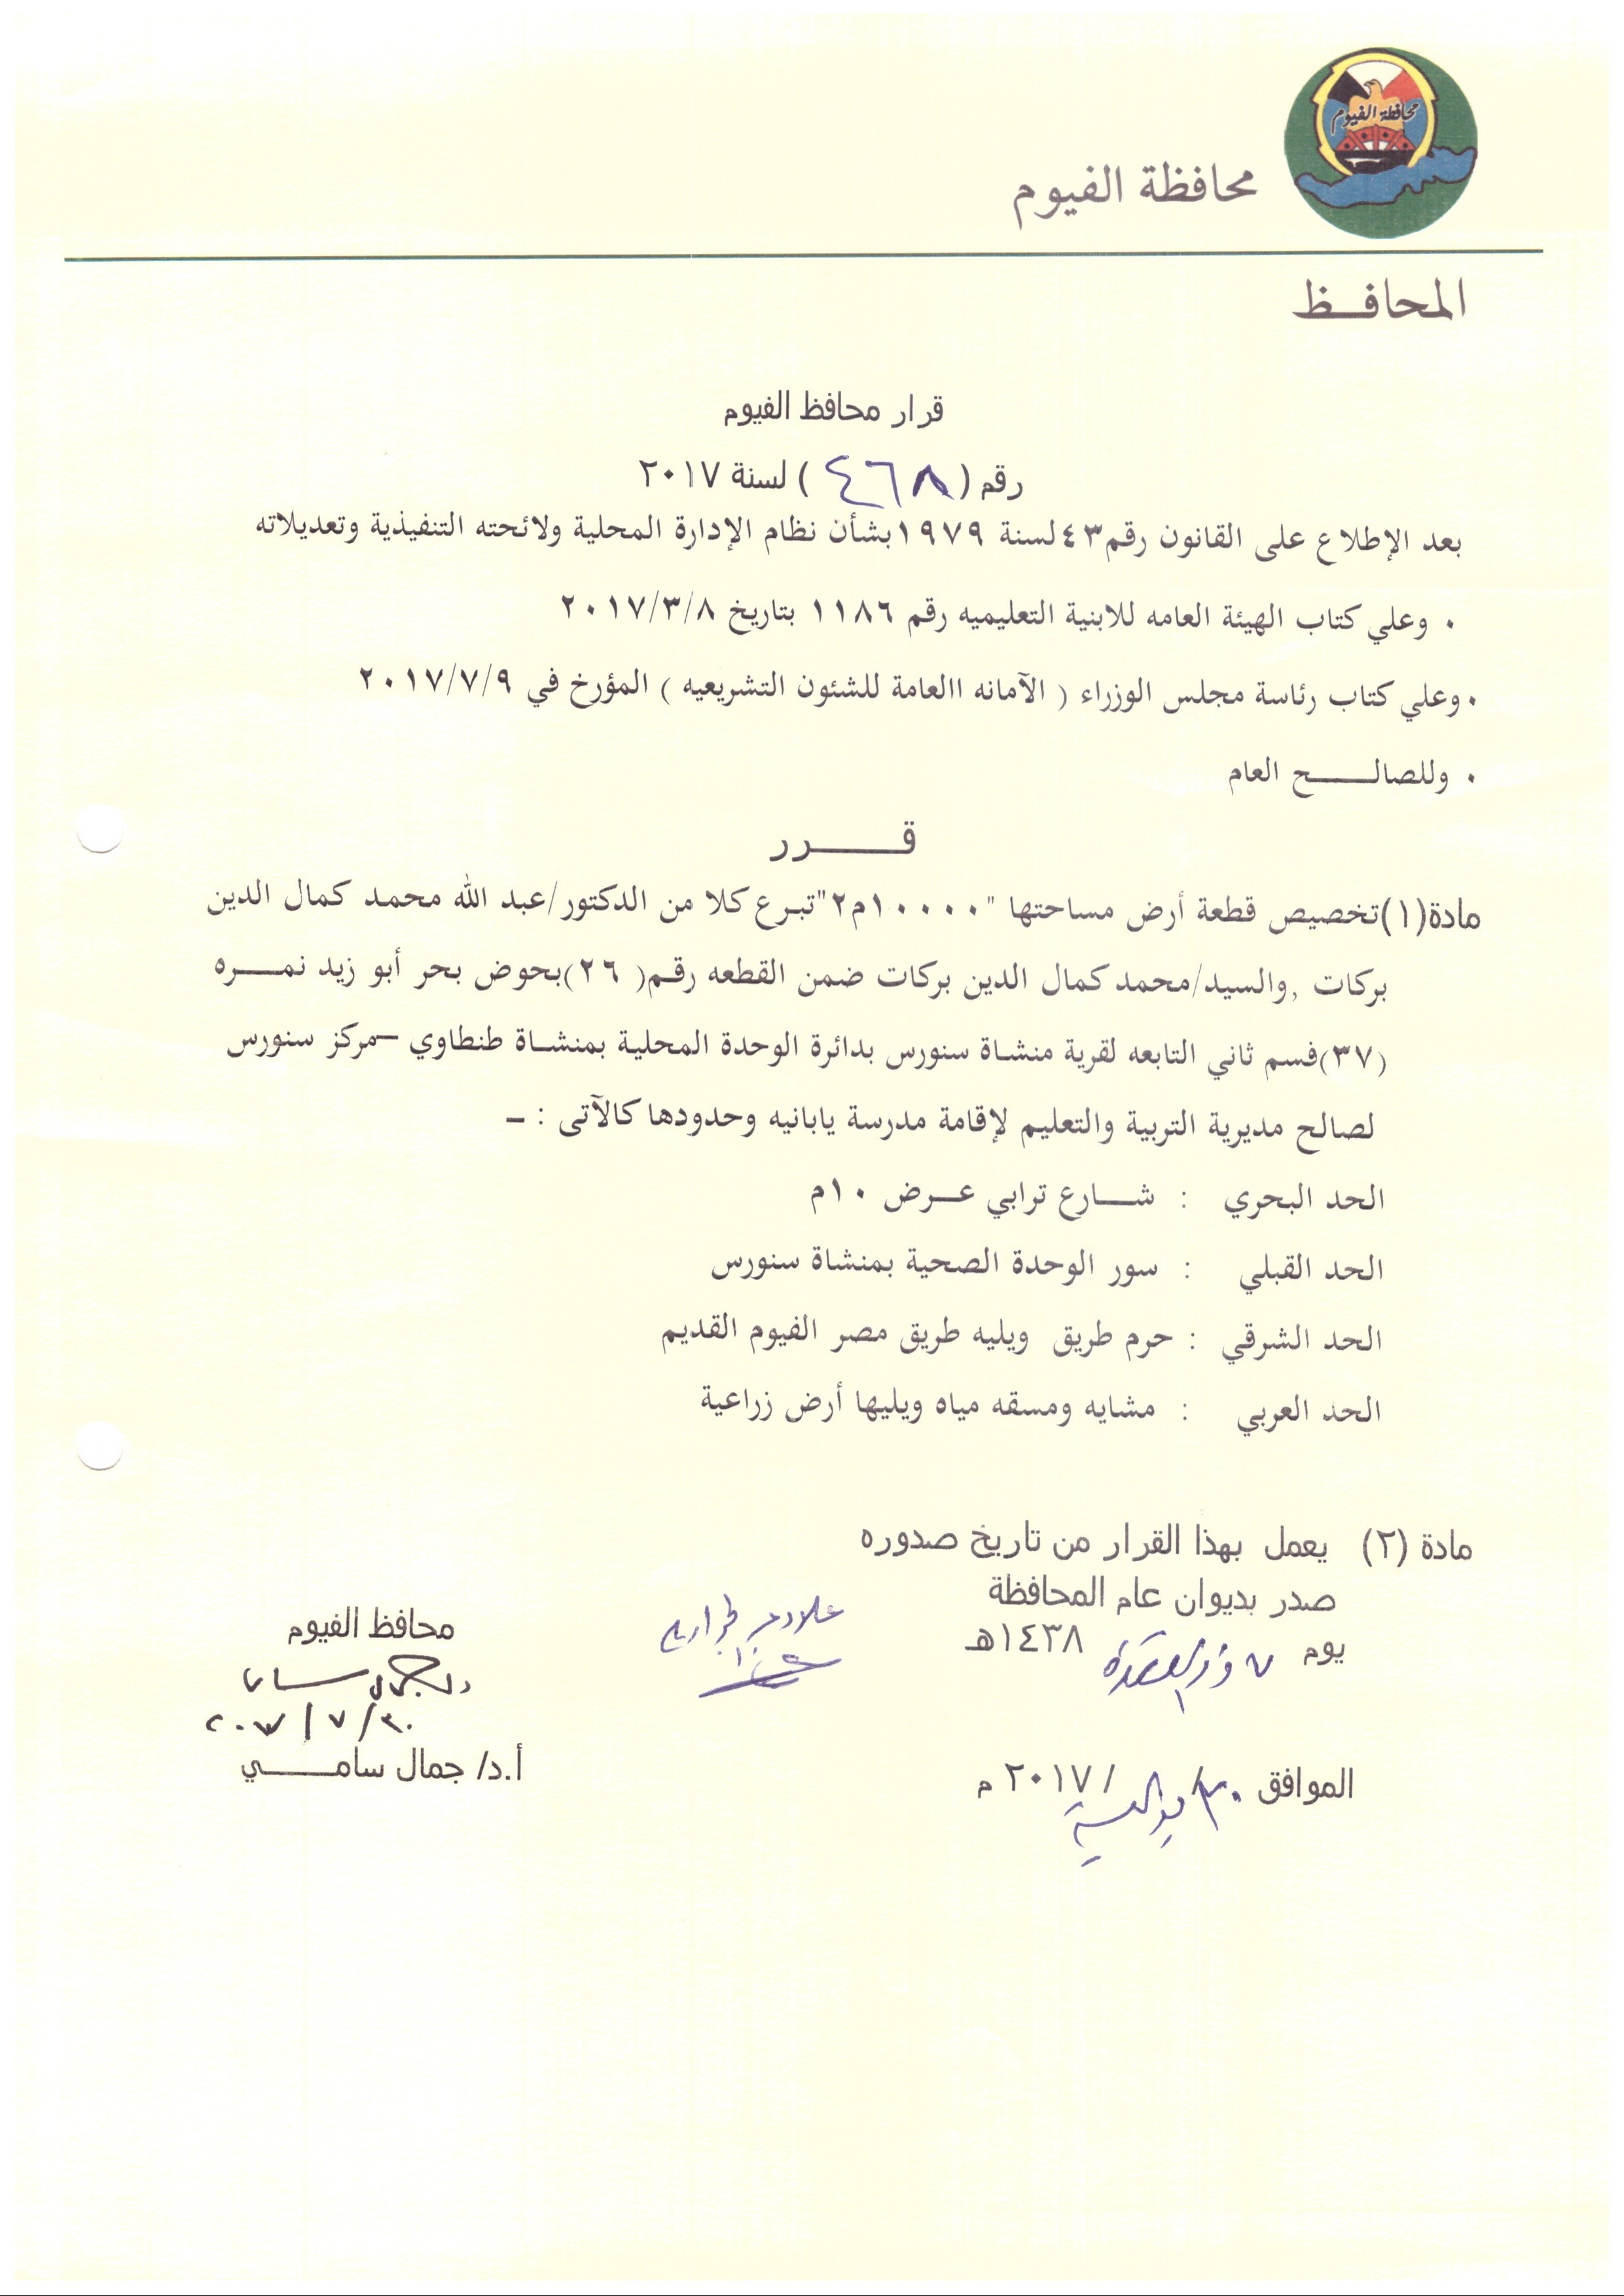 محافظة الفيوم
محافظة الفيوم
المحافــظ
قرار محافظ الفيوم
رقم ( ٤٦٨ ) لسنة ٢٠١٧
بعد الإطلاع على القانون رقم٤٣لسنة ١٩٧٩بشأن نظام الإدارة المحلية ولائحته التنفيذية وتعديلاته
٠ وعلي كتاب الهيئة العامه للابنية التعليميه رقم ١١٨٦ بتاريخ ٢٠١٧/٣/٨
٠وعلي كتاب رئاسة مجلس الوزراء ( الآمانه االعامة للشئون التشريعيه ) المؤرخ في ٢٠١٧/٧/٩
٠ وللصالــــح العام
قــــرر
مادة(١)تخصيص قطعة أرض مساحتها "١٠٠٠٠م٢"تبرع كلا من الدكتور/عبد الله محمد كمال الدين
بركات ,والسيد/محمد كمال الدين بركات ضمن القطعه رقم( ٢٦)بحوض بحر أبو زيد نمـــره
(٣٧)فسم ثاني التابعه لقرية منشاة سنورس بدائرة الوحدة المحلية بمنشاة طنطاوي –مركز سنورس
لصالح مديرية التربية والتعليم لإقامة مدرسة يابانيه وحدودها كالآتى : ـ
الحد البحري : شــارع ترابي عــرض ١٠م
الحد القبلي : سور الوحدة الصحية بمنشاة سنورس
الحد الشرقي : حرم طريق ويليه طريق مصر الفيوم القديم
الحد العربي : مشايه ومسقه مياه ويليها أرض زراعية
مادة (٢) يعمل بهذا القرار من تاريخ صدوره
صدر بديوان عام المحافظة
يوم ٧ ذو القعدة ١٤٣٨هـ
الموافق ٣٠/ يوليه /٢٠١٧ م
محافظ الفيوم
٢٠١٧/٧/٣٠
أ.د/ جمال سامـــــي